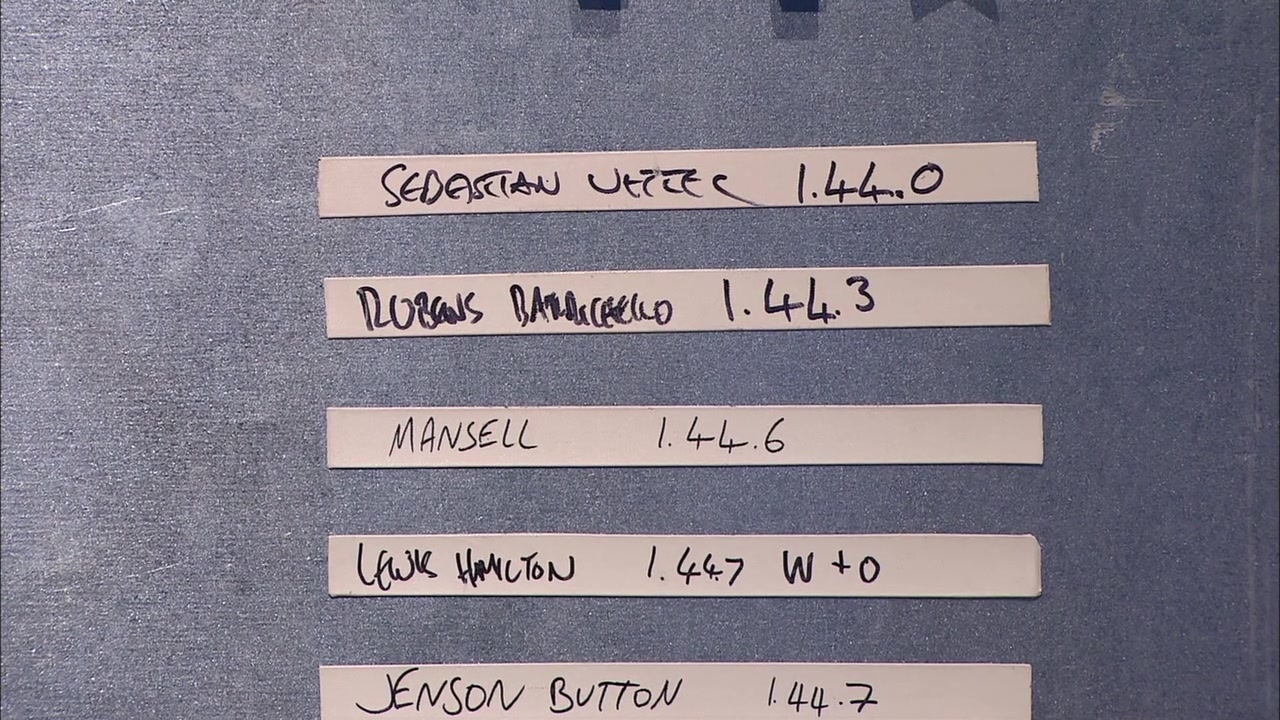 SEBASTIAN VETTEL 1.44.0
RUBENS BARRICHELLO 1.44.3
MANSELL 1.44.6
LEWIS HAMILTON 1.447 W + O
JENSON BUTTON 1.44.7